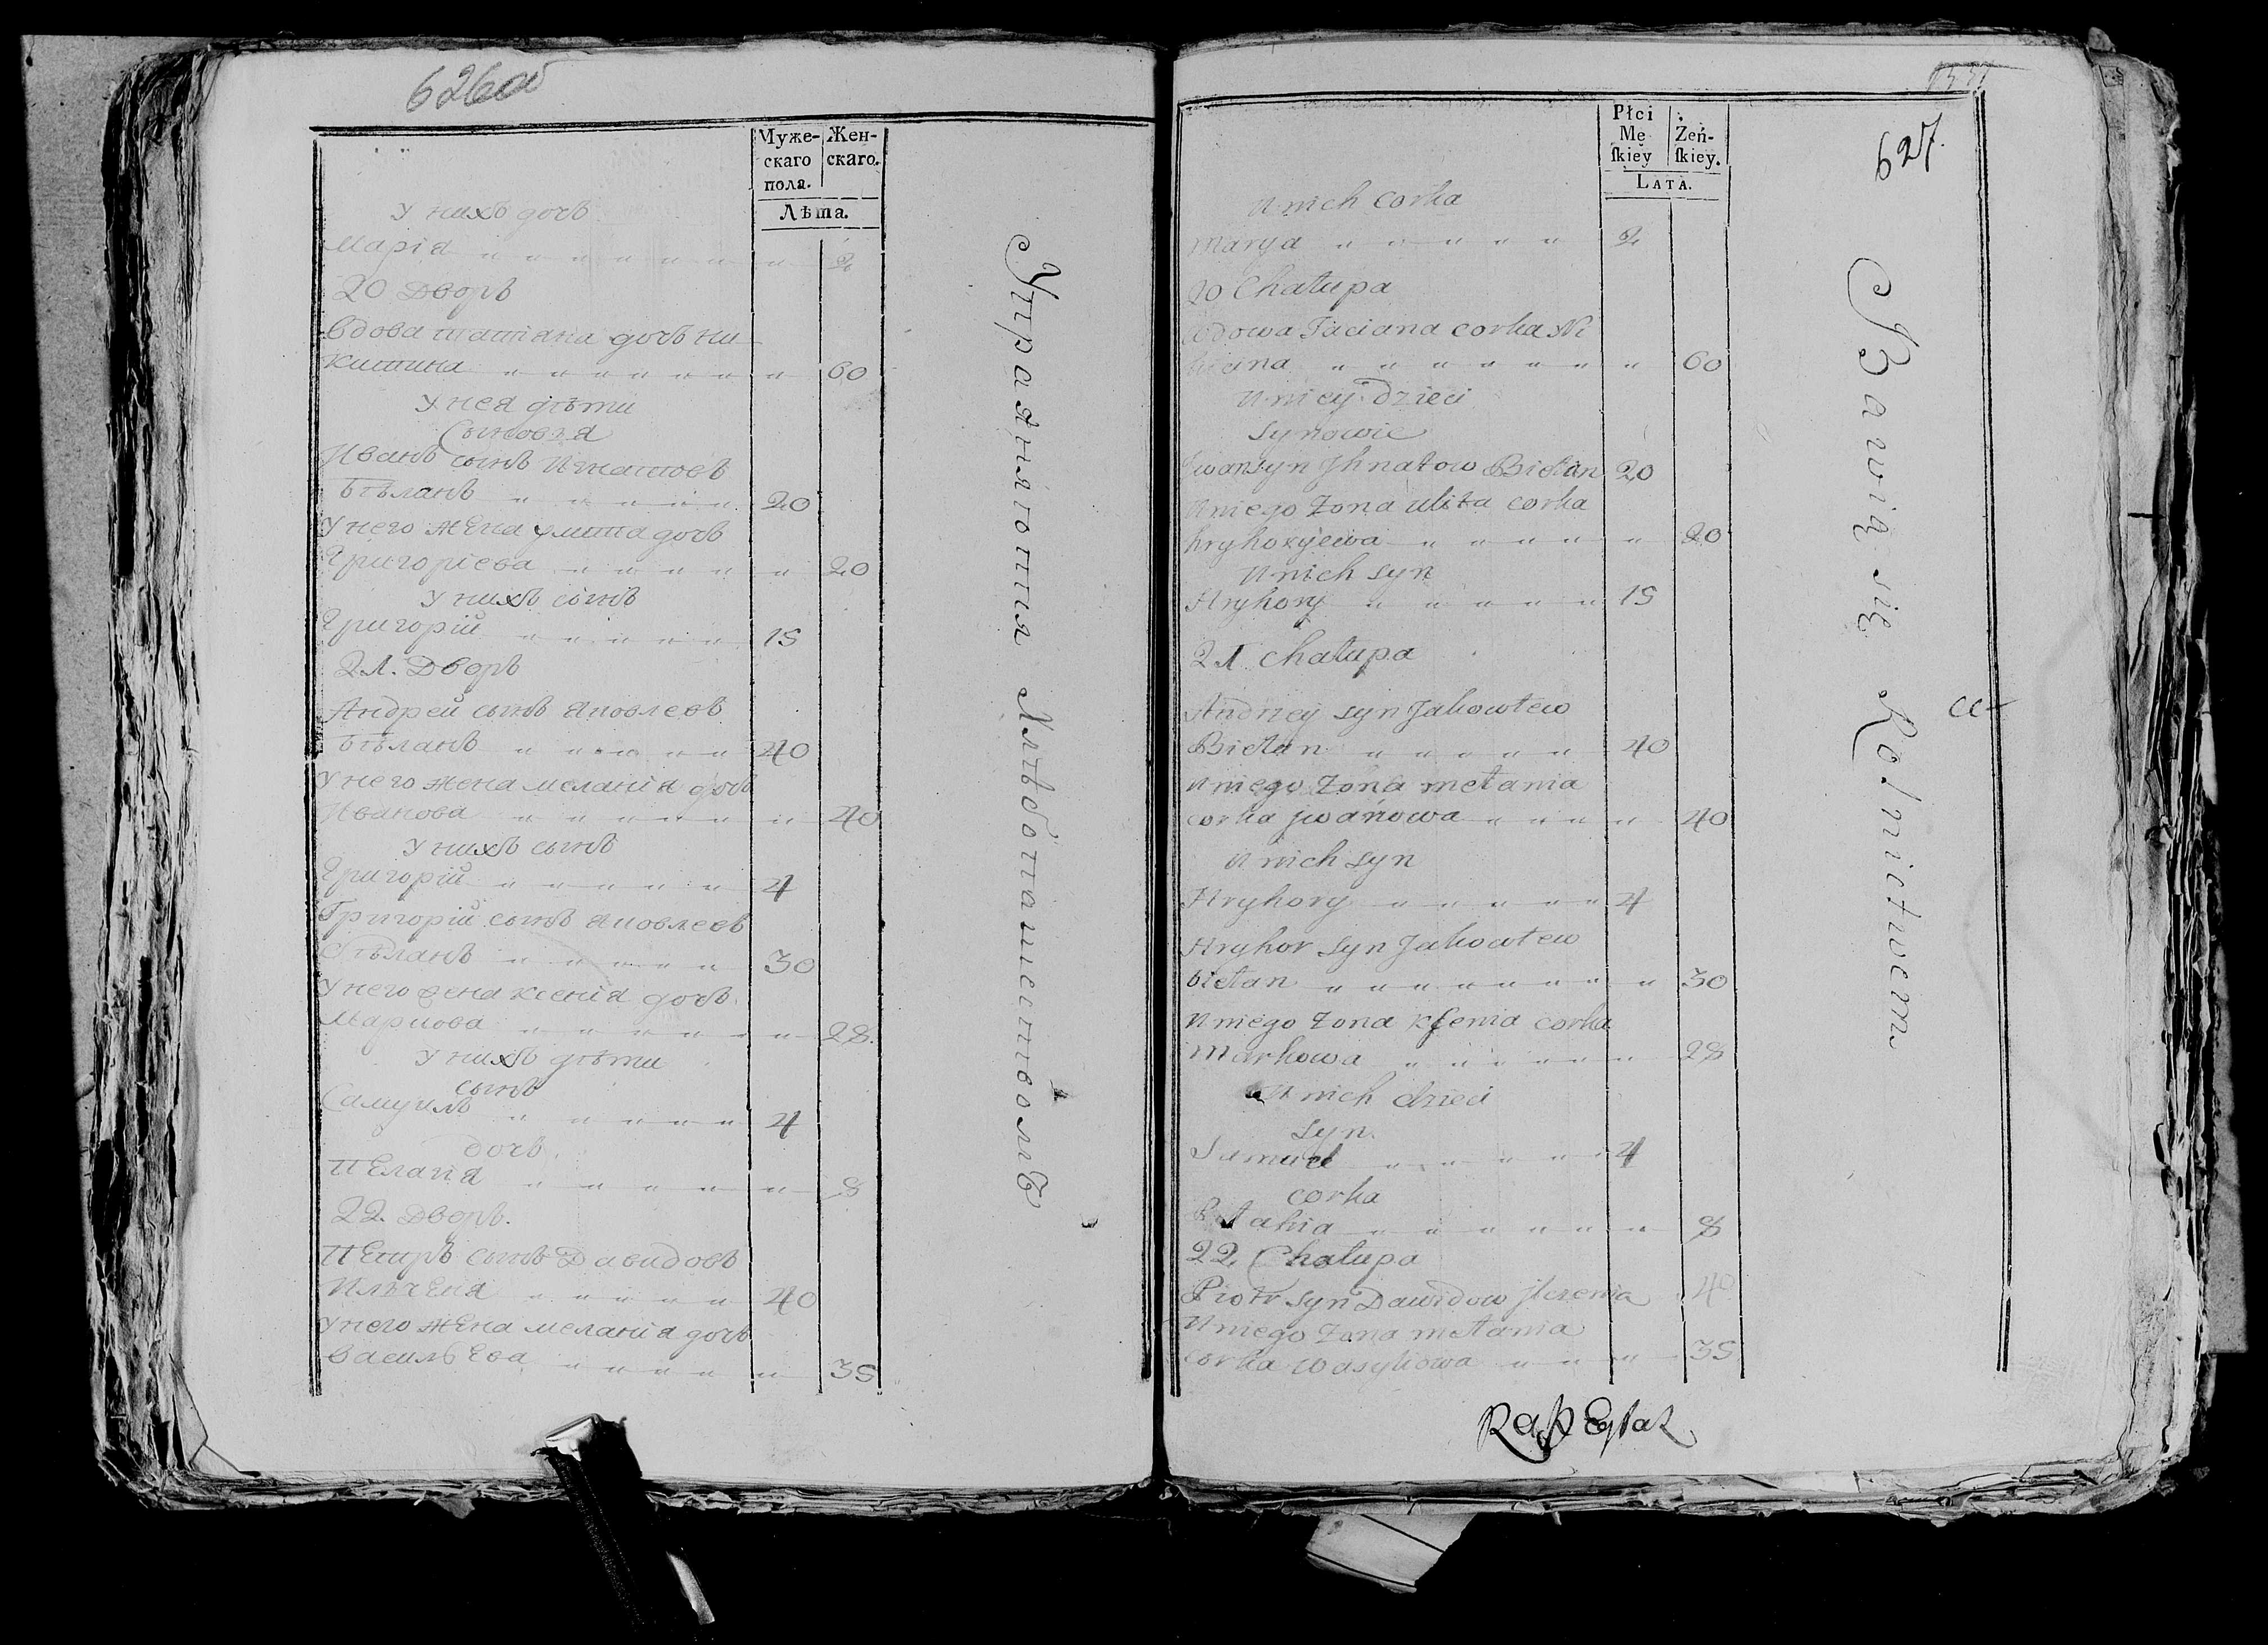 626об
Муже-
скаго
пола.
Жен-
скаго.
Лѣта.
У нихъ дочь
Марія " " " " " " " " 2
20 Дворъ
Вдова татіяна дочь Ни-
китина " " " " " " " " 60
У нея дѣти
Сыновья
Иванъ сынъ Игнатовъ
Бѣланъ " " " " " " 20
У него жена улита дочь
Григоріева " " " " " " 20
У нихъ сынъ
Григорій " " " " " " 15
21. Дворъ
Андрей сынъ Яковлевъ
Бѣланъ " " " " " " 40
У него жена меланія дочь
Иванова " " " " " " " 40
У нихъ сынъ
Григорій " " " " " " 4
Григорій сынъ Яковлевъ
Бѣланъ " " " " " 30
У него жена ксенія дочь
Маркова " " " " " " " 28.
У нихъ дѣти
сынъ
Самуилъ " " " " " " 4
дочь
Пелагія " " " " " " 8
22. Дворъ.
Петръ сынъ Давидовъ
Ильченя " " " " " " 40
У него жена меланія дочь
Васильева " " " " " " 35
Упражняютія Хлѣбопашествомъ
627.
Płci
Mę
ſkiey
Żeń-
ſkiey.
LATA.
U nich corka
Marya " " " " " 2
20 Chałupa
Wdowa Taciana corka Ni
kicina " " " " " " " " 60
U niey dzieci
Synowie
Iwan syn Jhnatow Biełan 20
U niego Zona ulita corka
hryhoryewa " " " " " " 20
U nich syn
Hryhory " " " " " " 15
21 Chałupa
Andrzey syn Jakowlew
Biełan " " " " " 40
U niego Zona mełania
corka jwanowa " " " " " 40
U nich syn
Hryhory " " " " " " 4
Hryhor syn Jakowlew
biełan " " " " " " " " 30
U niego Zona Kſenia corka
Markowa " " " " " " 28
U nich dzieci
syn.
Samuel " " " " " 4
corka
" " " " " " " 8
22 Chałupa
Piotr syn Dawidow jlczenia 40
U niego Zona mełania
corka wasylowa " " " " 35
Bawią się Rolnictwem